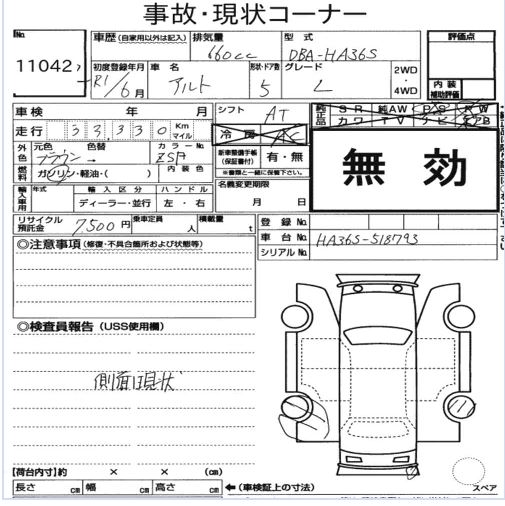 事故・現状コーナー
No. 11042
車歴 (自家用以外は記入) 排気量 660cc 型式 DBA-HA36S
評価点
初度登録年月 R1/6月 車名 アルト 形状・ドア数 5 グレード L 2WD・4WD
内装補助評価
車検 年 月 シフト AT
純正品 SR 純AW PS PW
カワ TV ナビ エアB
走行 33,330 Km マイル 冷房 AC
外色 元色 ブラウン 色替 カラーNo. ZSA
新車整備手帳(保証書付) 有・無
※書類と一緒に保管下さい。
無効
燃料 ガソリン・軽油・( ) 内装色
名義変更期限
月 日
輸入車用 年式 輸入区分 ハンドル
ディーラー・並行 左・右
リサイクル預託金 7500円 乗車定員 人 積載量 t
登録No.
車台No. HA36S-518793
シリアルNo.
◎注意事項 (修復・不具合箇所および状態等)
◎検査員報告 (USS使用欄)
側面現状
【荷台内寸】約 × × (cm)
長さ cm 幅 cm 高さ cm
←(車検証上の寸法)
スペア